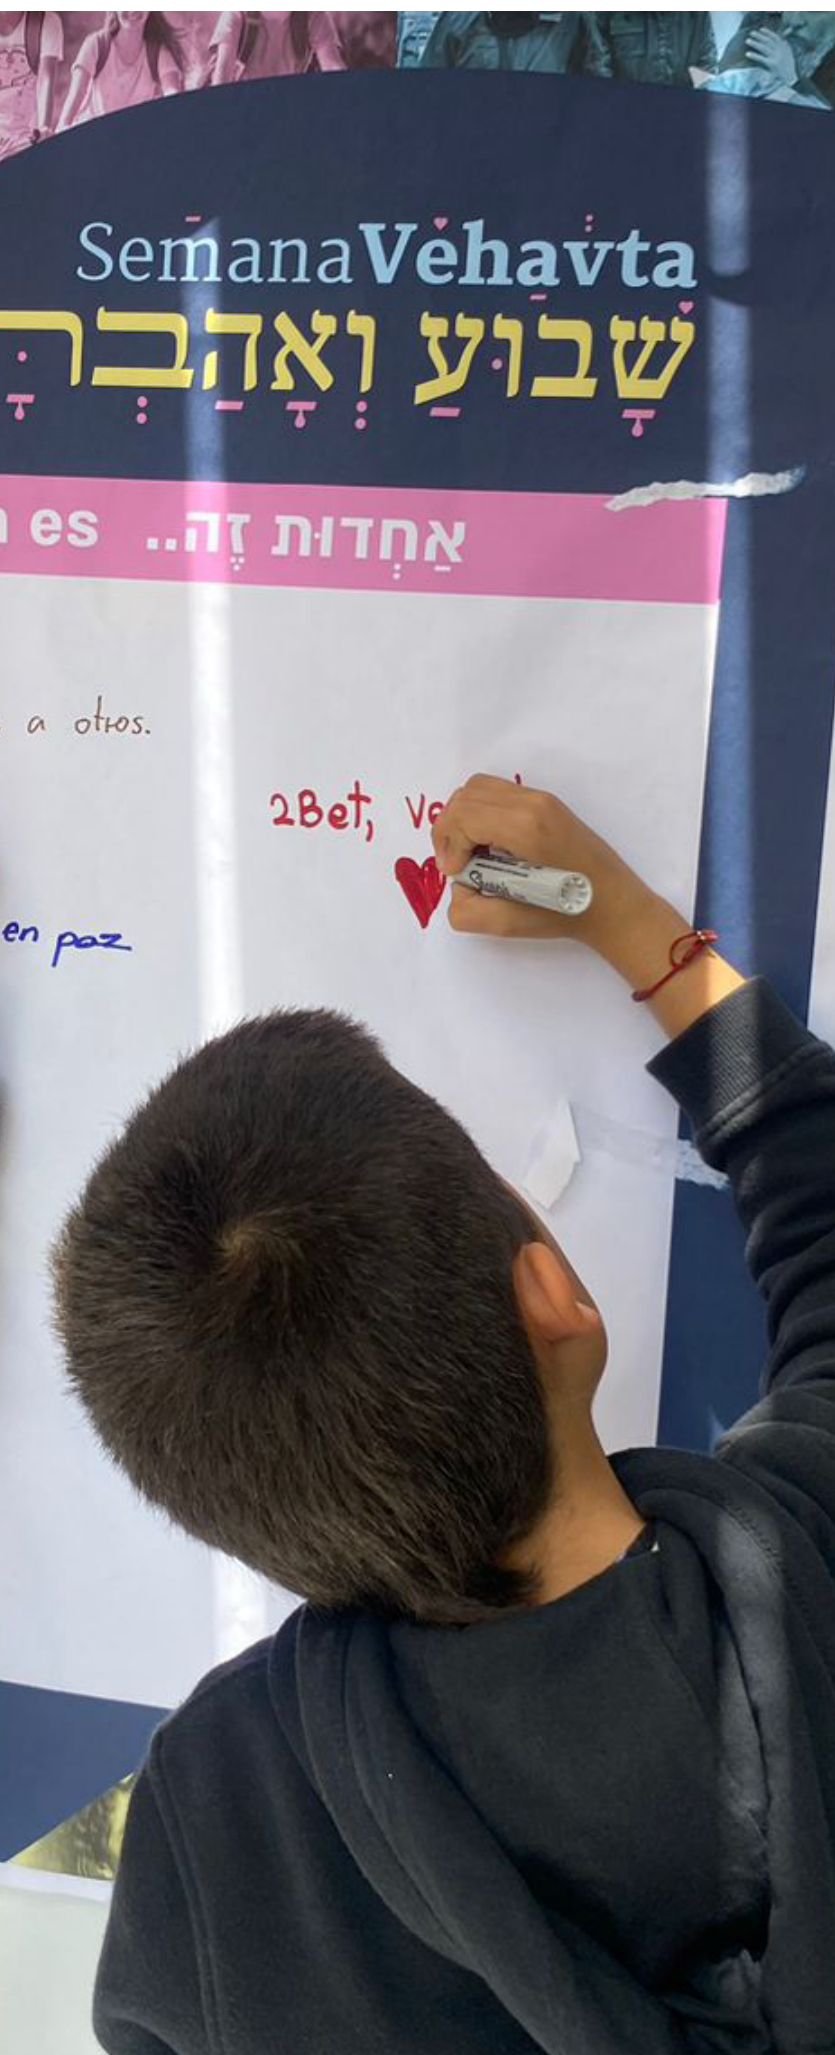 SemanaVehavta
שָׁבוּעַ וְאָהַבְתָּ
es
אַחְדוּת זֶה..
a otros.
2Bet,
en paz
Sharpie